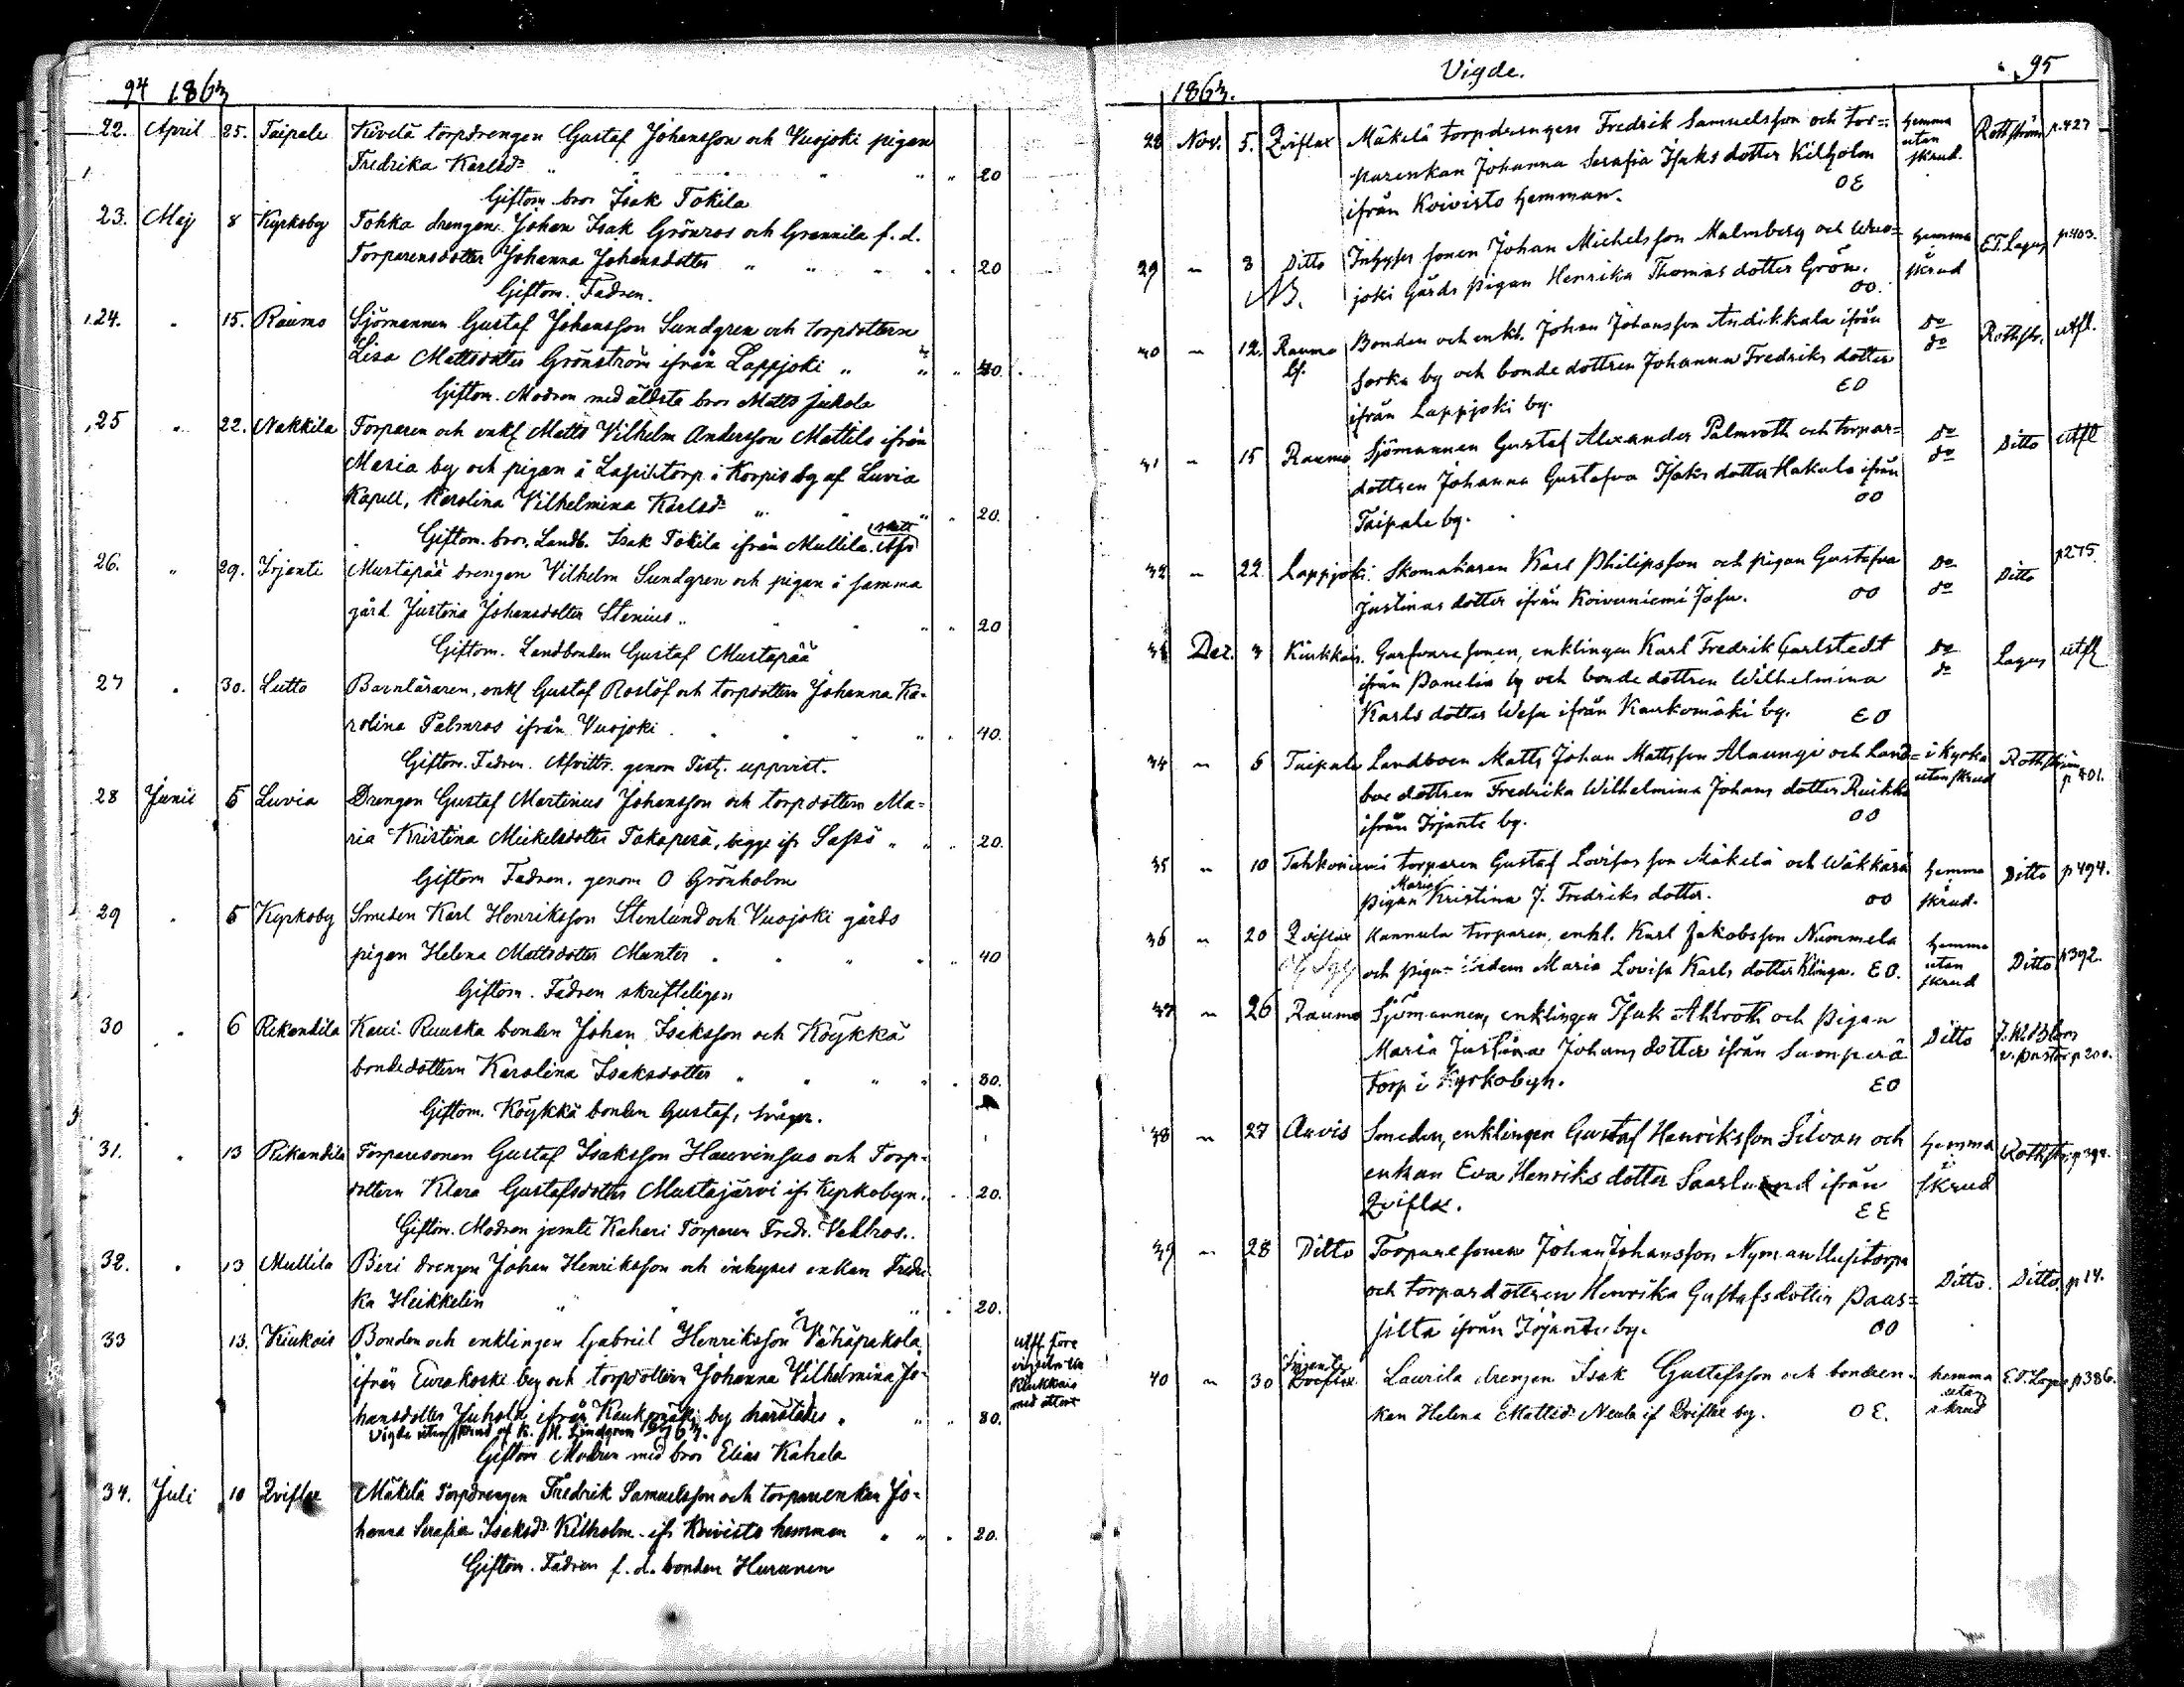 94 1863
22. April 25. Taipale Kivelä torpdrengen Gustaf Johansson och Vuojoki pigan
Fredrika Karlsdr " " " " " 20
Giftom. bror Isak Tokila
23. Maj 8 Kyrkoby Tokka drengen Johan Isak Grönros och Grannila f. d.
Torparensdotter Johanna Johansdotter " " " " 20
Giftom. Fadren.
24. " 15. Raumo Sjömannen Gustaf Johansson Sundgren och torpdottern
Lisa Mattsdotter Grönström ifrån Lappjoki " " "
Giftom. Modren med äldsta bror Matts Jukola
25 " 22. Nakkila Torparen och enkl Matts Vilhelm Andersson Mattila ifrån
Masia by och pigan i torp i Korpis by af Luvia
Kapell, Karolina Vilhelmina Karlsdr " " " 20.
Giftom. bror, Landb. Isak Tokila ifrån Mullila.
26. " 29. Irjanti Mustapää drengen Vilhelm Sundgren och pigan i samma
gård Justina Johansdotter Stenius " " " " 20
Giftom. Landbonden Gustaf Mustapää
27 " 30. Lutta Barnläraren, enkl Gustaf Roslöf och torpdottern Johanna Ka-
rolina Palmros ifrån Vuojoki " " " " 40.
Giftom. Fadren. Afvittr. genom Test. uppvist.
28 Junii 5 Luvia Drengen Gustaf Martinus Johansson och torpdottern Ma-
ria Kristina Mickelsdotter Takaperä, begge ifr Sassi " " " 20.
Giftom Fadren, genom O Grönholm
29 " 5 Kyrkoby Smeden Karl Henriksson Stenlund och Vuojoki gårds
pigan Helena Mattsdotter Munter " " " " 40
Giftom. Fadren skrifteligen
30 " 6 Rikandila Kaui. Ruuska bonden Johan Isaksson och Köykkä
bondedottern Karolina Isaksdotter " " " " 80.
Giftom. Köykkä bonden Gustaf, svåger.
31. " 13 Rikandila Torparesonen Gustaf Isaksson Hauvinsuo och Torp-
dottern Klara Gustafsdotter Mustajärvi ifr Kyrkobyn. " 20.
Giftom. Modren jemte Kahari Torparen Fredr. Vahlros.
32. " 13 Mullila Biri drengen Johan Henriksson och inhyses enkan Fredri
ka Heikkelin " " " " 20.
33 13. Kiukais Bonden och enklingen Gabriel Henriksson Vähäpakola
ifrån Eurakoski by och torpdottern Johanna Vilhelmina Jo-
hansdotter Juhola ifrån Kaukomäki by härstädes " " 80.
Vigde utan skrud af K. A. Lindgren
utfl före
vigseln till
Kiukkais
med attest
Giftom Modren med bror Elias Kahala
34. Juli 10 Zviflax Mäkilä Torpdrengen Fredrik Samuelsson och torparenkan Jo-
hanna Serafia Isaksdr Kilholm ifr Koivisto hemman " " " 20.
Giftom. Fadren f. d. bonden Huranen
Vigde. 95
1863.
28 Nov. 5. Zviflax Mäkelä torpdrengen Fredrik Samuelsson och Tor= hemma utan skrud. Rothström p.427
parenkan Johanna Serafia Isaks dotter Kilholm
ifrån Koivisto hemman. OE
29 " 8 Ditto Inhyses sonen Johan Michelsson Malmberg och Wuo= hemma i skrud E.T. Lagus p.403.
NB. joki Gårds pigan Henrika Thomas dotter Grön. OO.
30 " 12. Raumo lf. Bonden och enkl. Johan Johansson Andikkala ifrån do do Rothstr. utfl.
Sorka by och bonde dottren Johanna Fredriks dotter
ifrån Lappjoki by. EO
31 " 15 Raumo Sjömannen Gustaf Alexander Palmroth och torpar= do do Ditto utfl
dottren Johanna Gustafva Isaks dotter Hakala ifrån
Taipale by. OO
32 " 22 Lappjoki. Skomakaren Karl Philipsson och pigan Gustafva do do Ditto p275.
Justinas dotter ifrån Koivuniemi OO
33 Dec. 3 Kiukkais. Garfvare sonen, enklingen Karl Fredrik Carlstedt do do Lagus utfl
ifrån Panelia by och bonde dottren Wilhelmina
Karls dotter Wesa ifrån Kaukomäki by. EO
34 " 6 Taipale Landboen Matts Johan Mattsson Alaungi och Land= i Kyrka utan skrud Rothström p 401.
boe dottren Fredrika Wilhelmina Johans dotter Ruikka
ifrån Irjante by. OO
35 " 10 Tahkoniemi torparen Gustaf Lovisas son Mäkelä och Wäkkärä hemma i skrud. Ditto p 494.
pigan Maria Kristina J. Fredriks dotter. OO
36 " 20 Zviflax Kannula torparen, enkl. Karl Jakobsson Nummela hemma utan skrud Ditto p392.
och pigan Maria Lovisa Karls dotter Klinga. EO.
37 " 26 Raumo Sjömannen, enklingen Isak Ahlroth och pigan Ditto
Maria Justina Johans dotter ifrån Suonperä v. pastor p 200.
Torp i Kyrkobyn. EO
38 " 27 Auvis Smeden, enklingen Gustaf Henriksson Silvan och hemma i skrud Rothstr. p392.
enkan Eva Henriks dotter Saarlund ifrån
Zviflax. EE
39 " 28 Ditto Torparesonen Johan Johansson Nyman Uusitorpa Ditto. Ditto. p14.
och torpardottren Henrika Gustafsdotter Paas=
silta ifrån Irjante by. OO
40 " 30 Irjante Zviflax Laurila drengen Isak Gustafsson och bondeen- hemma utan skrud E.T. Lagus p386.
kan Helena Mattsdr Neula if Zviflax by. OE.